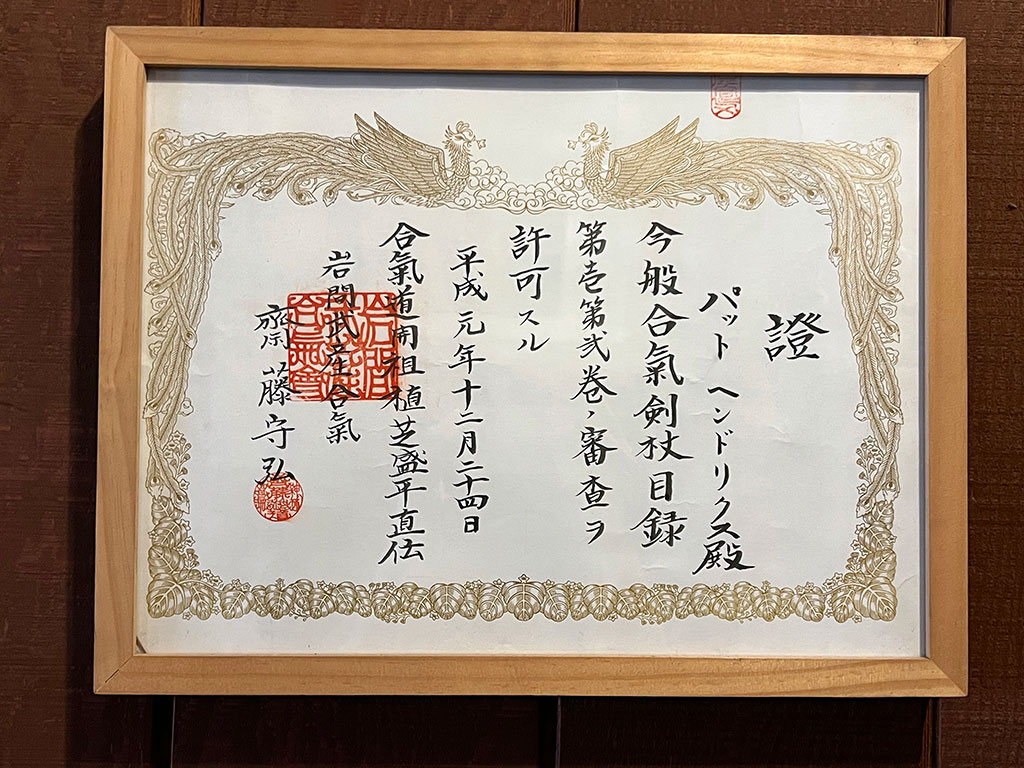 證
パット ヘンドリクス殿
今般合氣剣杖目録
第壱第弐巻、審査ヲ
許可スル
平成元年十二月二十四日
合氣道開祖植芝盛平直伝
岩間武産合氣
齋藤守弘